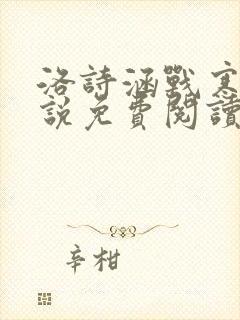 洛詩涵戰寒
說免費閱讀
辛柑